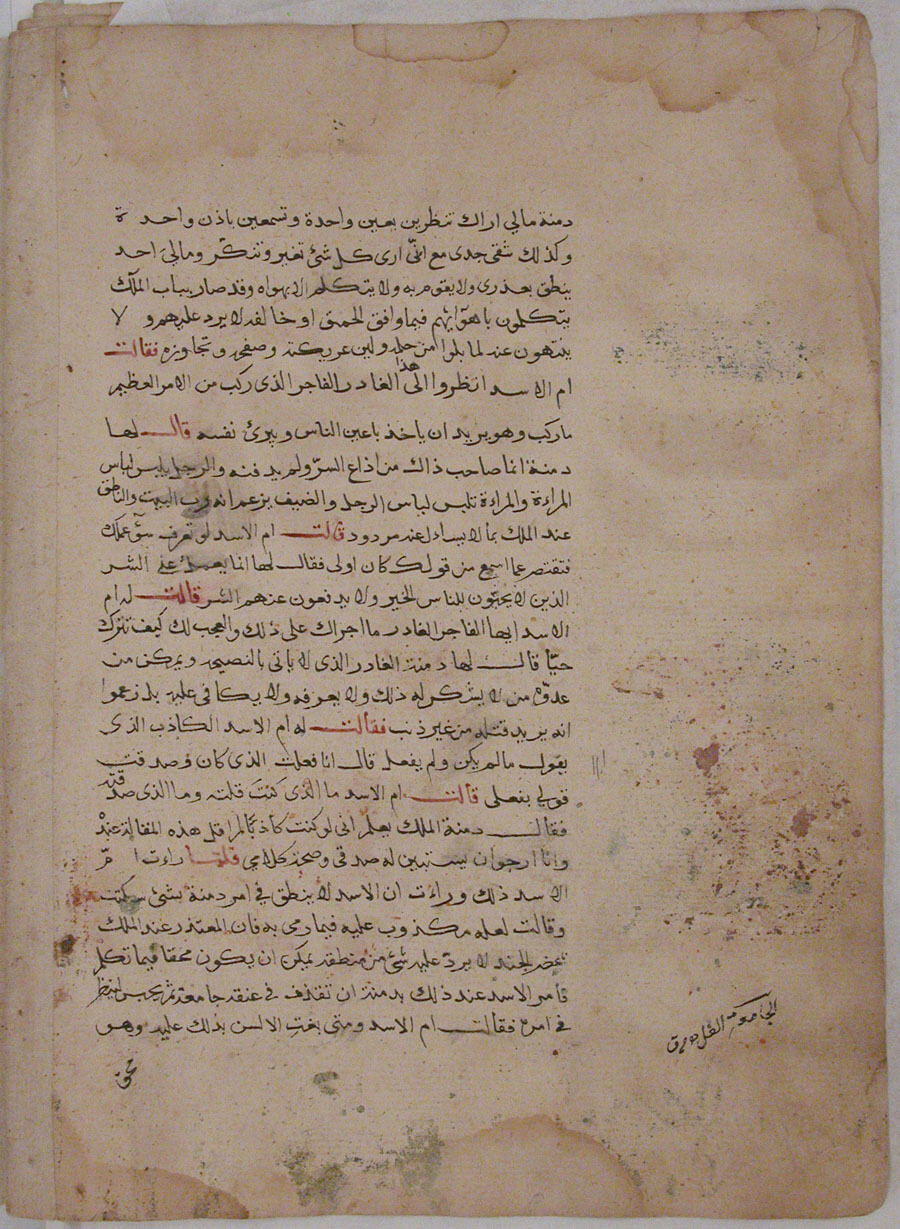 دمنة مالي اراك تنظرين بعين واحدة وتسمعين باذن واحدة
وكذلك شقى جدى مع انّى ارى كل شئ تغير وتنكّر ومالى احد
ينطق بعذرى ولا يقوم به ولا يتكلم الا بهواه وقد صار بباب الملك
يتكلمون باهوآئهم فيما وافق الحمق او خالفه لا يرد عليهم ولا
ينتهون عنه لما بلوا من حلمه ولين عريكته وصفحه وتجاوزه فقالت
ام الاسد انظروا الى هذا الغادر الفاجر الذى ركب من الامر العظيم
ما ركب وهو يريد ان ياخذ باعين الناس ويبرئ نفسه قال لها
دمنة انما صاحب ذاك من اذاع السرّ ولم يدفنه والرجل يلبس لباس
المراءة والمراءة تلبس لباس الرجل والضيف يزعم انه رب البيت والناطق
عند الملك بما لا يسال عنه مردود قالت ام الاسد لو تعرف سوٓ عملك
فتقتصر عما اسمع من قولك كان اولى فقال لها انما يعمل على الشر
الذين لا يحبّون للناس الخير ولا يدفعون عنهم الشر قالت له ام
الاسد ايها الفاجر الغادر ما اجراك على ذلك والعجب لك كيف تترك
حيّا قال لها دمنة الغادر الذى لا ياتى بالنصيحة ويمكن من
عدوّه من لا يشكر له ذلك ولا يعرفه ولا يكافى عليه بل زعموا
انه يريد قتله من غير ذنب فقالت له ام الاسد الكاذب الذى
يقول ما لم يكن ولم يفعل قال انا فعلت الذى كان وصدقت
قولى بفعلى قالت ام الاسد ما الذى كنت قلته وما الذى صدقته
فقال دمنة الملك يعلم انى لو كنت كاذبًا لم اقل هذه المقالة عنده
وانا ارجو ان يستبين له صدقى وصحة كلامى فلما راءت امّ
الاسد ذلك وراءت ان الاسد لا ينطق فى امر دمنة بشئ سكتت
وقالت لعله مكذوب عليه فيما رمى به فان المعتذر عند الملك
بمحضر الجند لا يردّ عليه شئ من منطقه يمكن ان يكون محقا فيما تكلم
فامر الاسد عند ذلك بدمنة ان تقذف فى عنقه جامعة ثم يحبس لينظر
فى امره فقالت ام الاسد ومتى بغت الالسن بذلك عليه وهو
الجامعة الغل